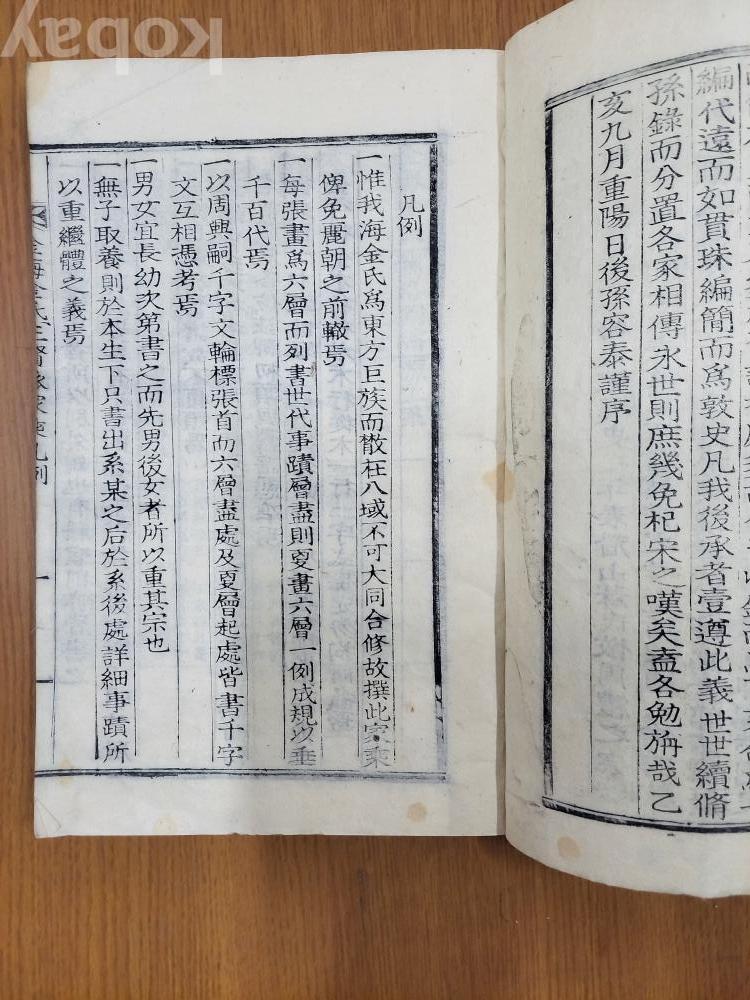 編代遠而如貫珠編簡而爲敦史凡我後承者壹遵此義世世續脩
孫錄而分置各家相傳永世則庶幾免杞宋之嘆矣盍各勉旃哉乙
亥九月重陽日後孫容泰謹序
凡例
一惟我海金氏爲東方巨族而散在八域不可大同合修故撰此家乘
俾免麗朝之前轍焉
一每張畫爲六層而列書世代事蹟層盡則更畫六層一例成規以垂
千百代焉
一以周興嗣千字文輪標張首而六層盡處及更層起處皆書千字
文互相憑考焉
一男女宜長幼次第書之而先男後女者所以重其宗也
一無子取養則於本生下只書出系某之后於系後處詳細事蹟所
以重繼體之義焉
金海金氏三賢派家乘凡例 一
Kobay